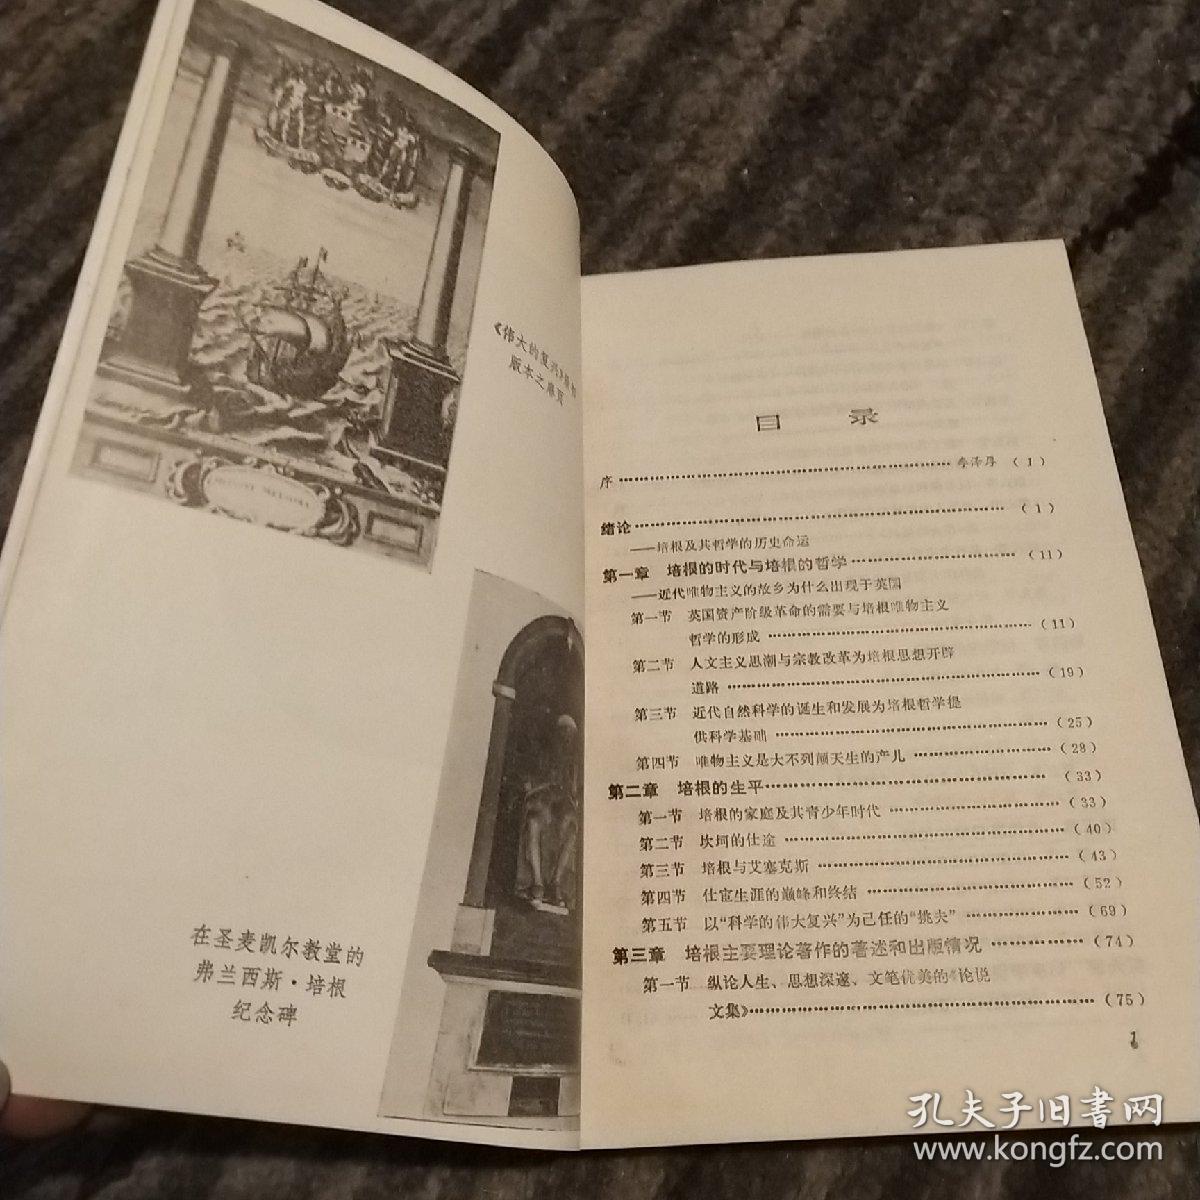 《伟大的复兴》
版本之扉页
在圣麦凯尔教堂的
弗兰西斯·培根
纪念碑
目 录
序……………………李泽厚 (1)
绪论……………………(1)
——培根及其哲学的历史命运
第一章 培根的时代与培根的哲学……………………(11)
——近代唯物主义的故乡为什么出现于英国
第一节 英国资产阶级革命的需要与培根唯物主义
哲学的形成……………………(11)
第二节 人文主义思潮与宗教改革为培根思想开辟
道路……………………(19)
第三节 近代自然科学的诞生和发展为培根哲学提
供科学基础……………………(25)
第四节 唯物主义是大不列颠天生的产儿……………………(28)
第二章 培根的生平……………………(33)
第一节 培根的家庭及其青少年时代……………………(33)
第二节 坎坷的仕途……………………(40)
第三节 培根与艾塞克斯……………………(43)
第四节 仕宦生涯的巅峰和终结……………………(52)
第五节 以“科学的伟大复兴”为己任的“挑夫”……………………(69)
第三章 培根主要理论著作的著述和出版情况……………………(74)
第一节 纵论人生、思想深邃、文笔优美的《论说
文集》……………………(75)
1
孔夫子旧书网
www.kongfz.com